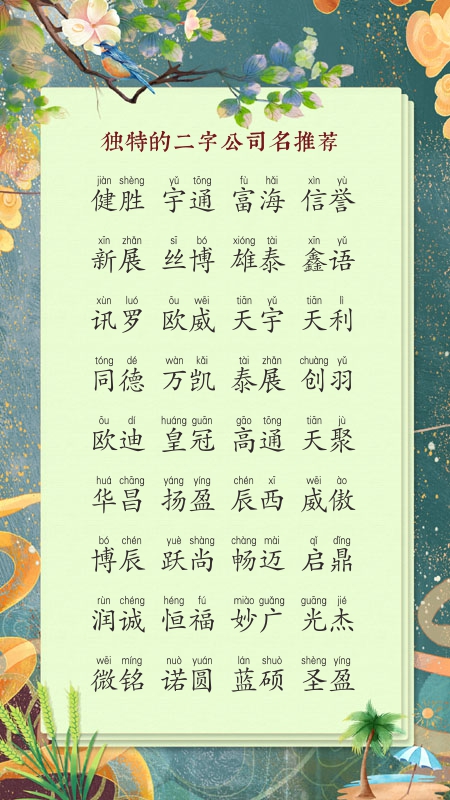 独特的二字公司名推荐
jiàn shèng yǔ tōng fù hǎi xìn yù
健胜 宇通 富海 信誉
xīn zhǎn sī bó xióng tài xīn yǔ
新展 丝博 雄泰 鑫语
xùn luó ōu wēi tiān yǔ tiān lì
讯罗 欧威 天宇 天利
tóng dé wàn kǎi tài zhǎn chuàng yǔ
同德 万凯 泰展 创羽
ōu dí huáng guān gāo tōng tiān jù
欧迪 皇冠 高通 天聚
huá chāng yáng yíng chén xī wēi ào
华昌 扬盈 辰西 威傲
bó chén yuè shàng chàng mài qǐ dǐng
博辰 跃尚 畅迈 启鼎
rùn chéng héng fú miào guǎng guāng jié
润诚 恒福 妙广 光杰
wēi míng nuò yuán lán shuò shèng yíng
微铭 诺圆 蓝硕 圣盈